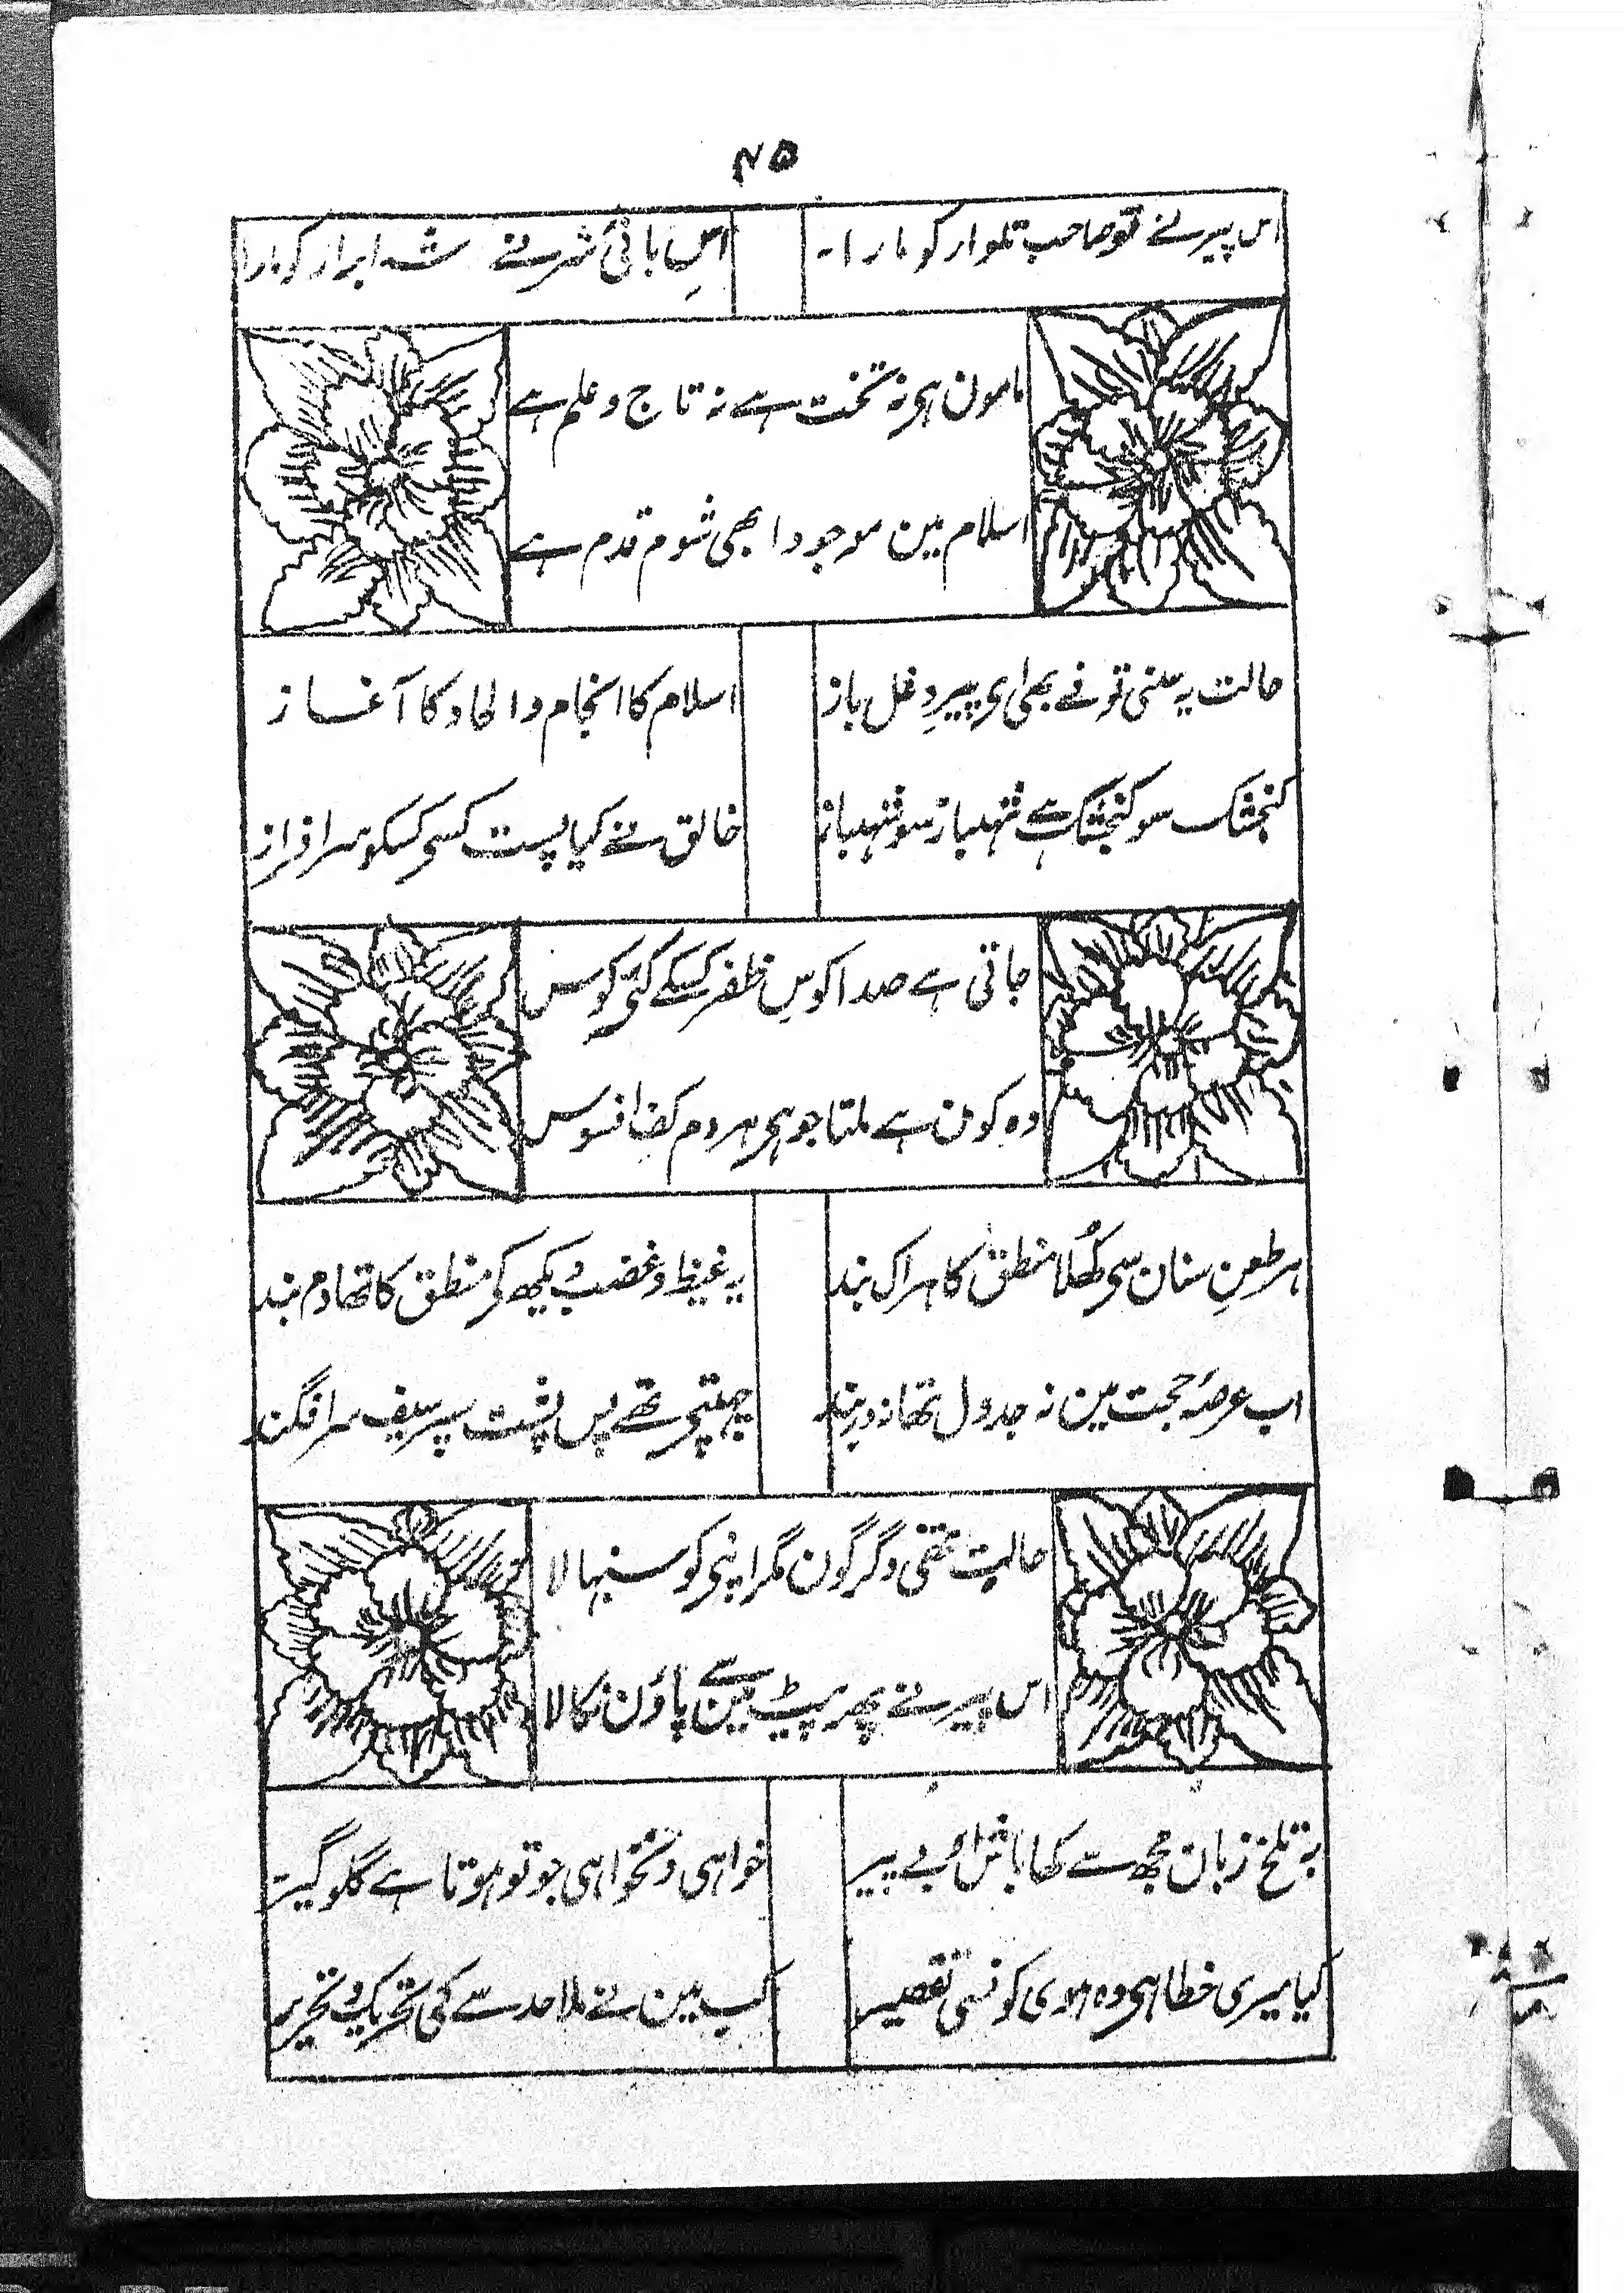 ۴۵
اس پیر نے تو صاحب تلوار کو مارا۔ اس بانئ شر نے شہ ابرار کو مارا
مامون ہی نہ تخت ہے نہ تاج و علم ہے
اسلام مین موجود ابھی شوم قدم ہے
حالت یہ سنی تو نے بھی ای پیرِ دغل باز اسلام کا انجام و الحاد کا آغاز
کنجشک سو کنجشک ہے شہباز سو شہباز خالق نے کیا پست کسی کسکو سرافراز
جاتی ہے صدا کوسِ ظفر کیکے کئی کوس
وہ کون ہے ملتا جو ہی ہر دم کف افسوس
ہر طعنِ سنان سی کھُلا منطق کا ہر اک بند یہ غیظ و غضب دیکھ کر منطق کا تھا دم بند
اب عرصۂ حجت مین نہ جدول تھا نہ در بند چھپتی تھے پس پشت سپر سیف سرافگند
حالت تھی دگرگون مگر اپنی کو سنبھالا
اس پیر نے پھر پیٹ مین سے پاؤن نکالا
بہ تلخ زبان مجھ سے کھا باش او بے پیر خواہی و نخواہی جو تو ہوتا ہے گلوگیر
کیا میری خطا ہی وہ ہوی کونسی تقصیر کب مین نے ملاحد سے کی تحریک و تحریر